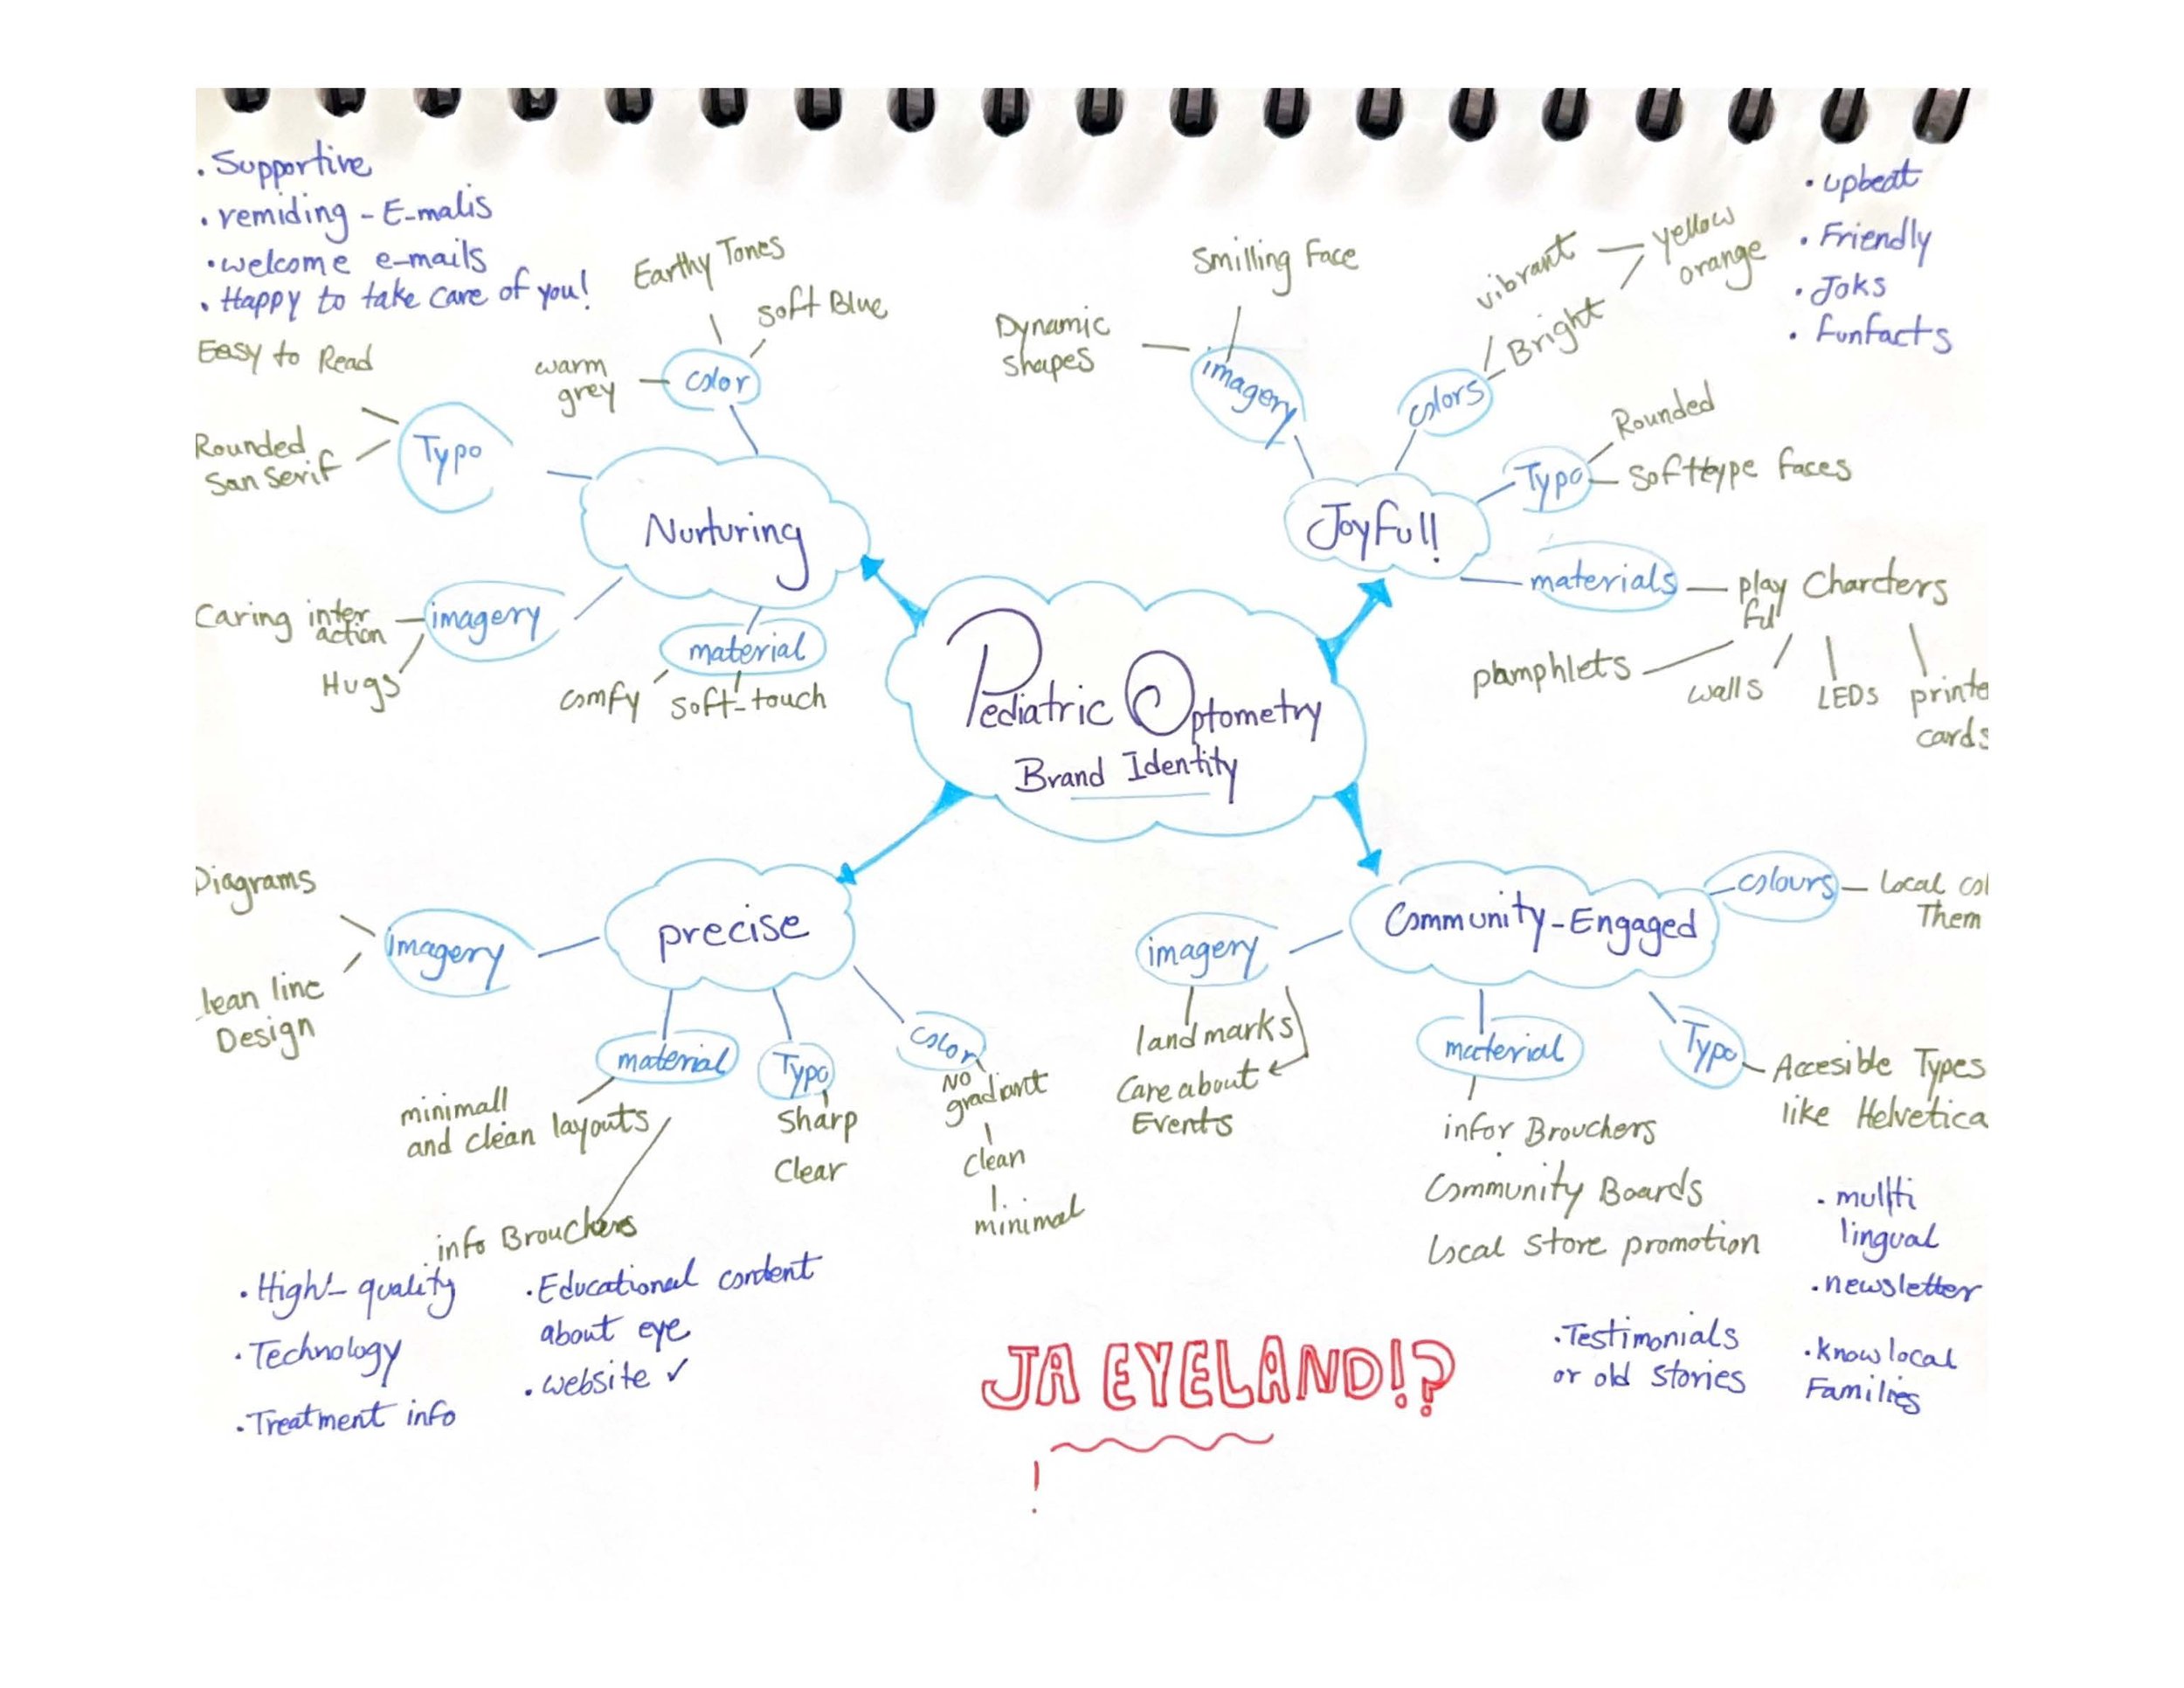 . Supportive
. remiding - E-malis
. welcome e-mails
. Happy to take care of you!
Easy to Read
Rounded
San Serif
Typo
Earthy Tones
soft Blue
warm
grey
color
Nurturing
Caring inter
action
Hugs
imagery
material
comfy
soft-touch
Smilling Face
Dynamic
shapes
imagery
vibrant
yellow
orange
Bright
colors
. upbeat
. Friendly
. Joks
. Funfacts
Rounded
Typo
Softtype faces
Joyfull!
materials
play
ful
Charcters
pamphlets
walls
LEDs
printe
cards
Pediatric Optometry
Brand Identity
Diagrams
lean line
Design
imagery
precise
material
minimall
and clean layouts
info Brouchers
Typo
Sharp
Clear
color
No
gradiant
Clean
minimal
. High-quality
. Technology
. Treatment info
. Educational content
about eye
. website ✓
Community-Engaged
colours
Local col
Them
imagery
landmarks
Care about
Events
material
infor Brouchers
Community Boards
Local store promotion
Typo
Accesible Types
like Helvetica
. mullti
lingual
. newsletter
. know local
Families
. Testimonials
or old stories
JA EYELAND!?
!